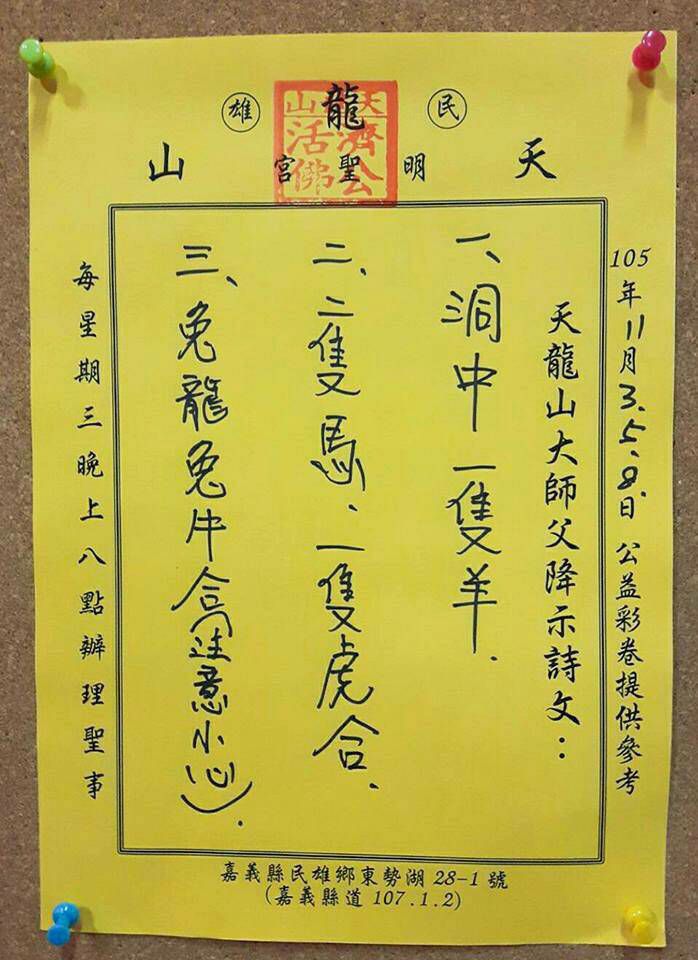 民雄
天龍山
明聖宮
濟公
活佛
105年11月3.5.8.日 公益彩卷提供參考
天龍山大師父降示詩文：
一、洞中一隻羊.
二、二隻馬、一隻虎合.
三、兔龍兔牛合(注意小心).
每星期三晚上八點辦理聖事
嘉義縣民雄鄉東勢湖28-1號
(嘉義縣道107.1.2)